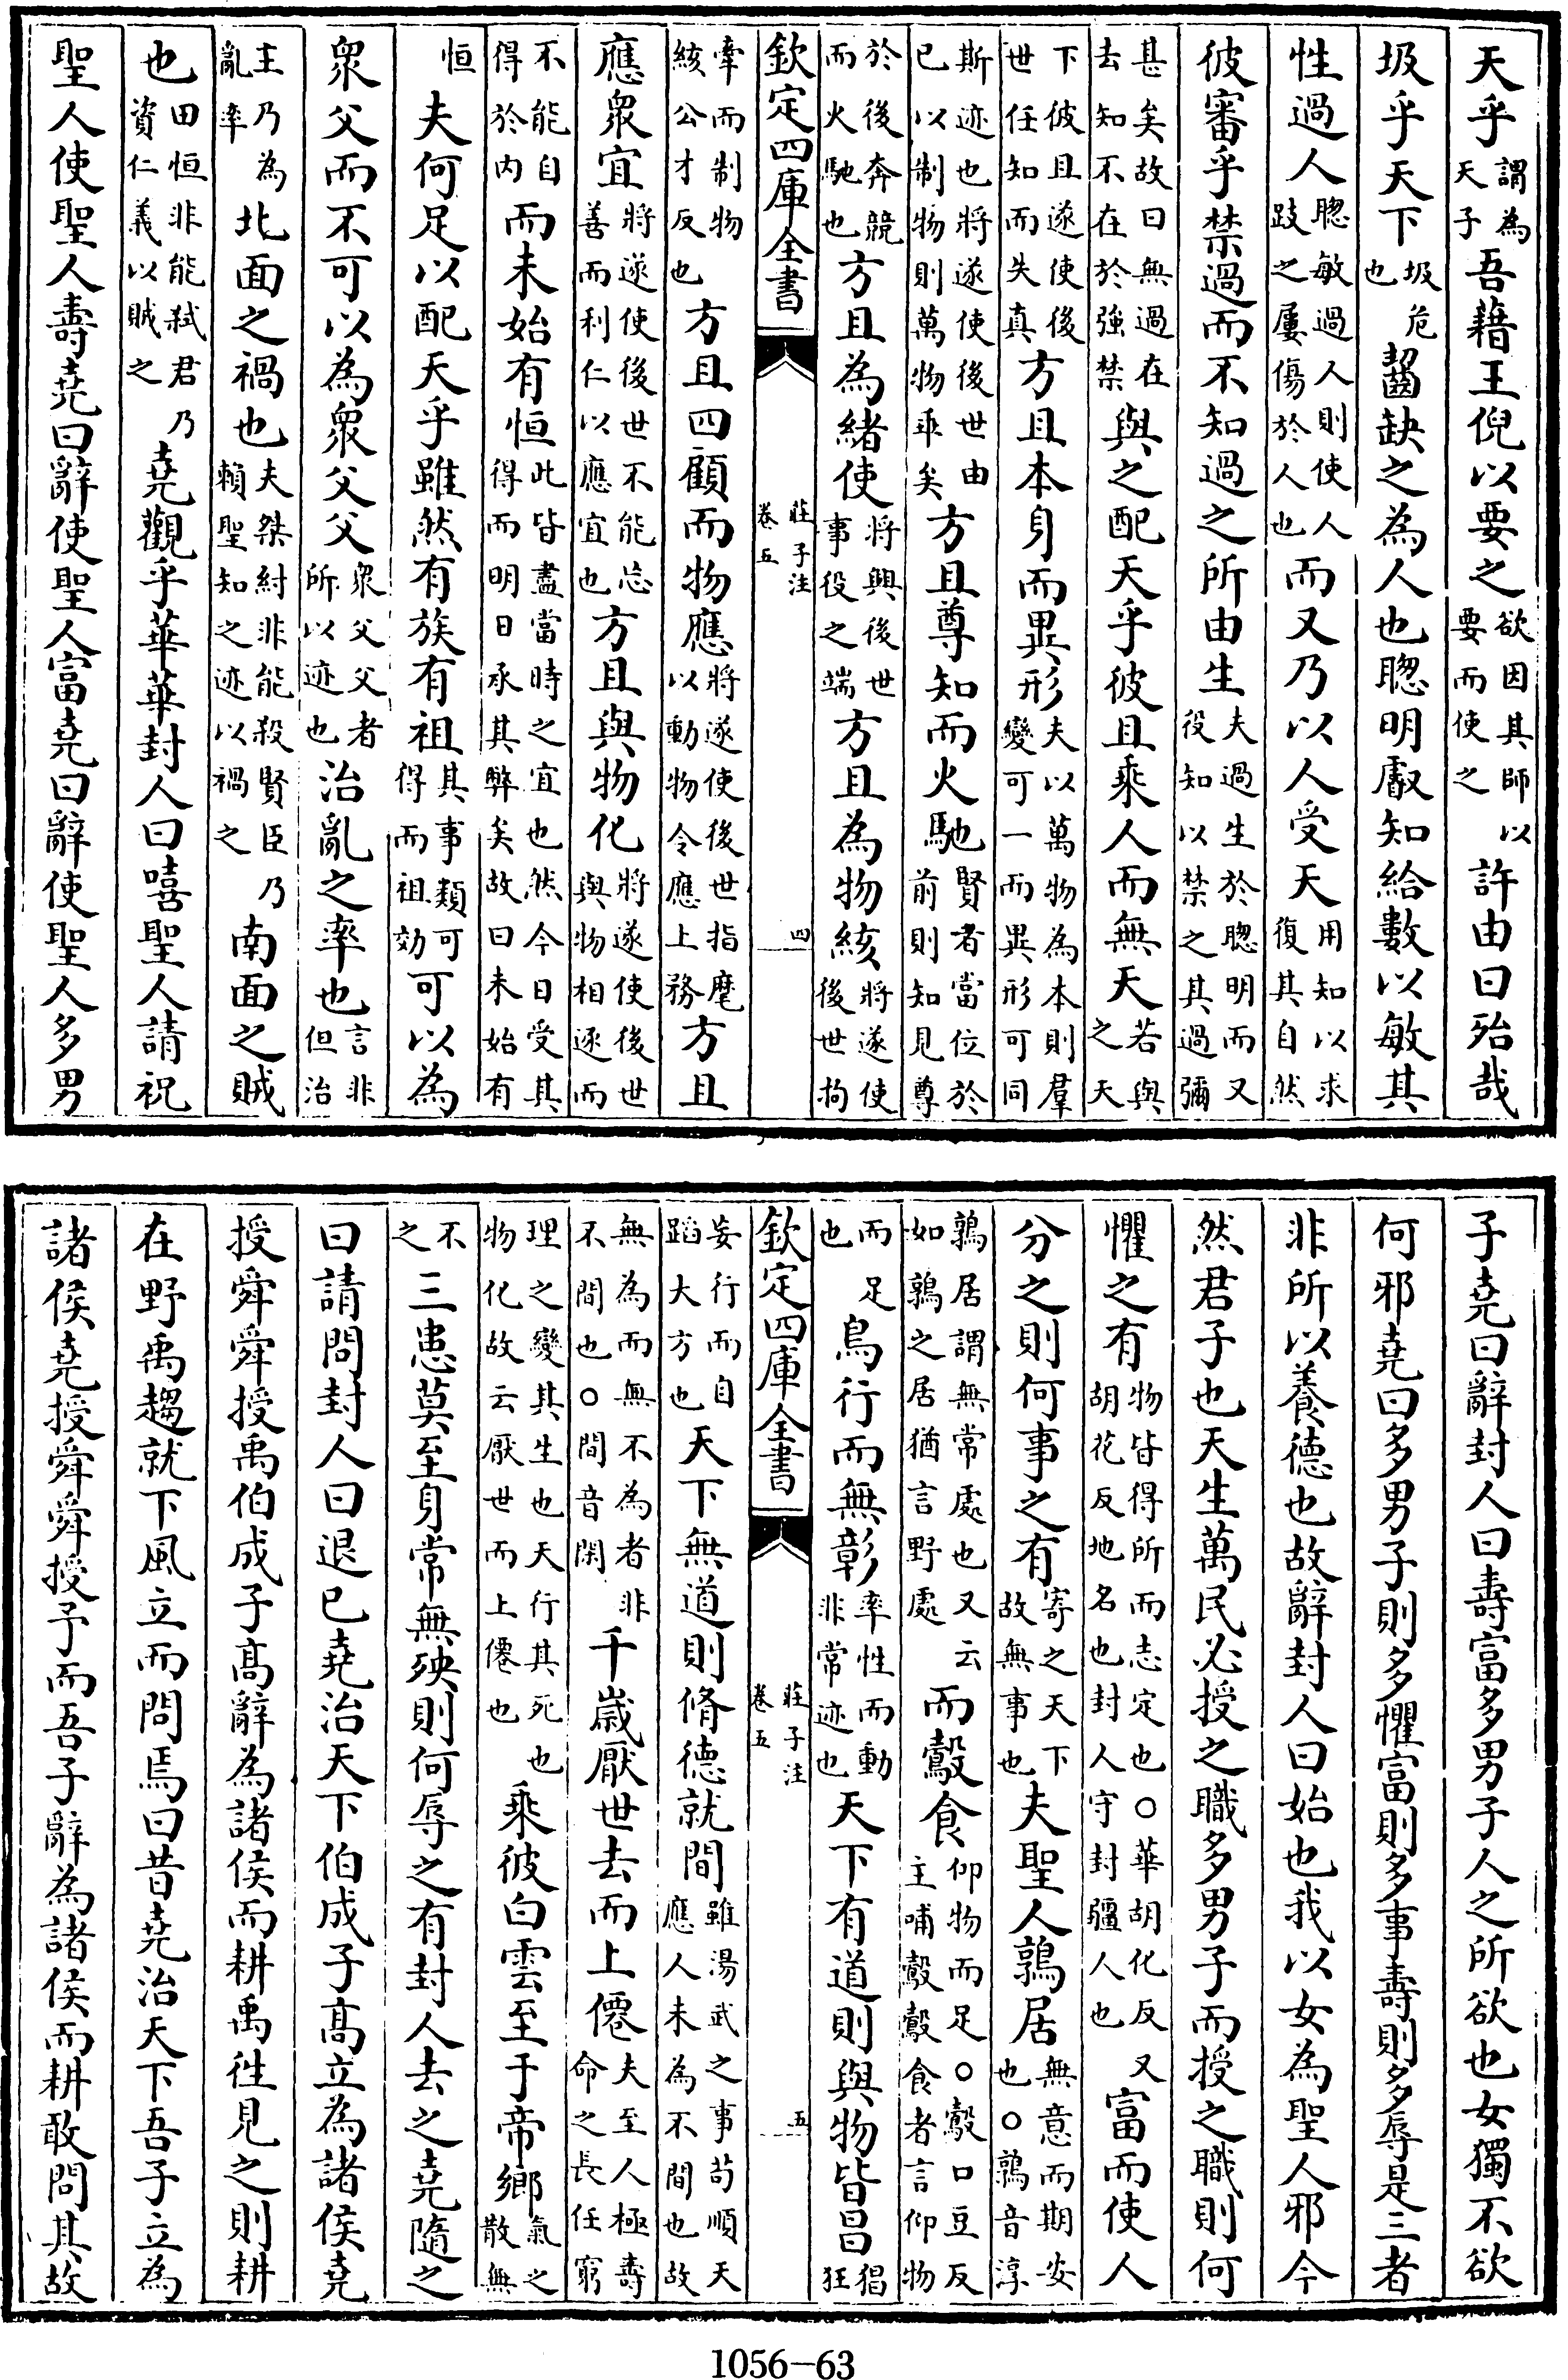 天乎謂為天子吾藉王倪以要之欲因其師以要而使之許由曰殆哉
圾乎天下圾危也齧缺之為人也聰明叡知給數以敏其
性過人聰敏過人則使人跂之屢傷於人也而又乃以人受天用知以求復其自然
彼審乎禁過而不知過之所由生夫過生於聰明而又役知以禁之其過彌
甚矣故曰無過在去知不在於強禁與之配天乎彼且乘人而無天若與之天
下彼且遂使後世任知而失真方且本身而異形夫以萬物為本則羣變可一而異形可同
斯迹也將遂使後世由已以制物則萬物乖矣方且尊知而火馳賢者當位於前則知見尊
於後奔競而火馳也方且為緒使將興後世事役之端方且為物絯將遂使後世拘
欽定四庫全書 莊子注卷五 四
牽而制物絯公才反也方且四顧而物應將遂使後世指麾以動物令應上務方且
應衆宜將遂使後世不能忘善而利仁以應宜也方且與物化將遂使後世與物相逐而
不能自得於内而未始有恒此皆盡當時之宜也然今日受其得而明日承其弊矣故曰未始有
恒夫何足以配天乎雖然有族有祖其事類可得而祖效可以為
衆父而不可以為衆父父衆父父者所以迹也治亂之率也言非但治
王乃為亂率北面之禍也夫桀紂非能殺賢臣乃賴聖知之迹以禍之南面之賊
也田恒非能弑君乃資仁義以賊之堯觀乎華華封人曰嘻聖人請祝
聖人使聖人壽堯曰辭使聖人富堯曰辭使聖人多男
子堯曰辭封人曰壽富多男子人之所欲也女獨不欲
何邪堯曰多男子則多懼富則多事壽則多辱是三者
非所以養德也故辭封人曰始也我以女為聖人邪今
然君子也天生萬民必授之職多男子而授之職則何
懼之有物皆得所而志定也○華胡化反又胡花反地名也封人守封疆人也富而使人
分之則何事之有寄之天下故無事也夫聖人鶉居無意而期安也○鶉音淳
鶉居謂無常處也又云如鶉之居猶言野處而鷇食仰物而足○鷇口豆反主哺鷇鷇食者言仰物
而足也鳥行而無彰率性而動非常迹也天下有道則與物皆昌猖狂
欽定四庫全書 莊子注卷五 五
妄行而自蹈大方也天下無道則脩德就間雖湯武之事苟順天應人未為不間也故
無為而無不為者非不間也○間音閑千歲厭世去而上僊夫至人極壽命之長任窮
理之變其生也天行其死也物化故云厭世而上僊也乘彼白雲至于帝鄉氣之散無
不之三患莫至身常無殃則何辱之有封人去之堯隨之
曰請問封人曰退已堯治天下伯成子高立為諸侯堯
授舜舜授禹伯成子高辭為諸侯而耕禹徃見之則耕
在野禹趨就下風立而問焉曰昔堯治天下吾子立為
諸侯堯授舜舜授予而吾子辭為諸侯而耕敢問其故
1056—63